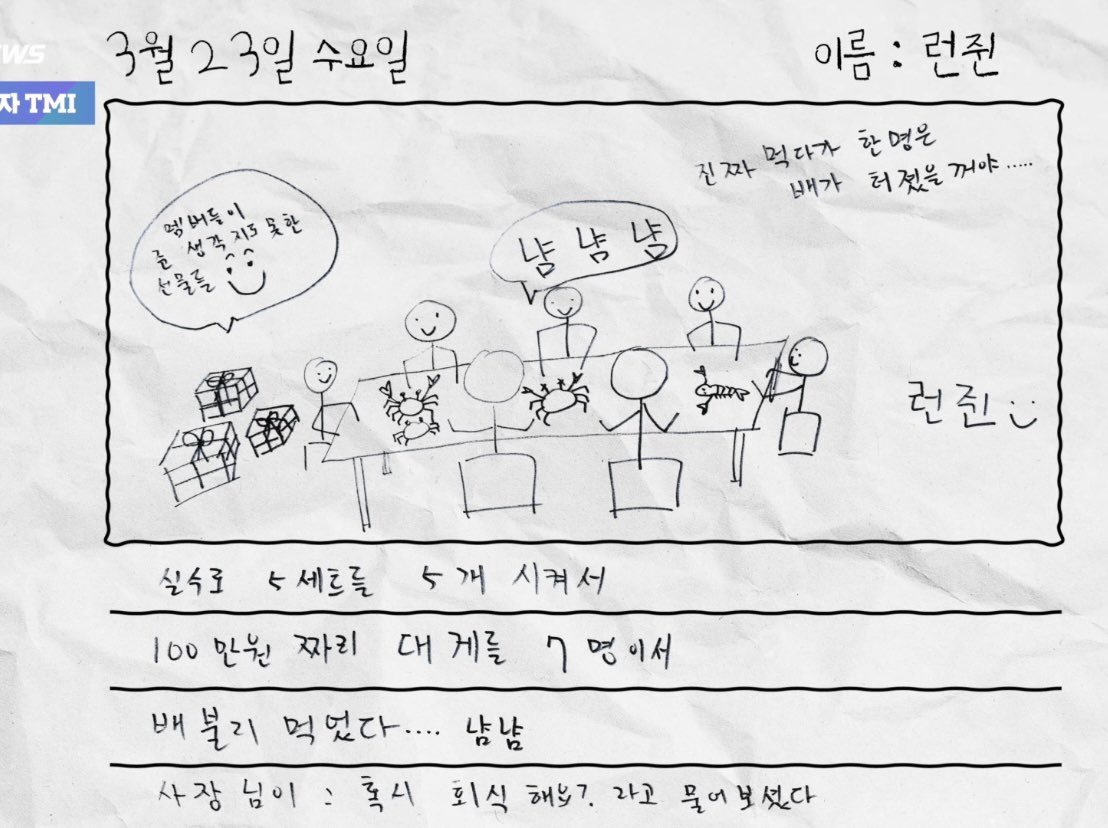 3월 23일 수요일
이름 : 런쥔
자 TMI
진짜 먹다가 한 명은
배가 터졌을꺼야.....
멤버들이
준 생각지도 못한
선물들
냠 냠 냠
런쥔
실수로 5세트를 5개 시켜서
100만원 짜리 대게를 7명이서
배불리 먹었다.... 냠냠
사장님이 : 혹시 회식해요? 라고 물어보셨다